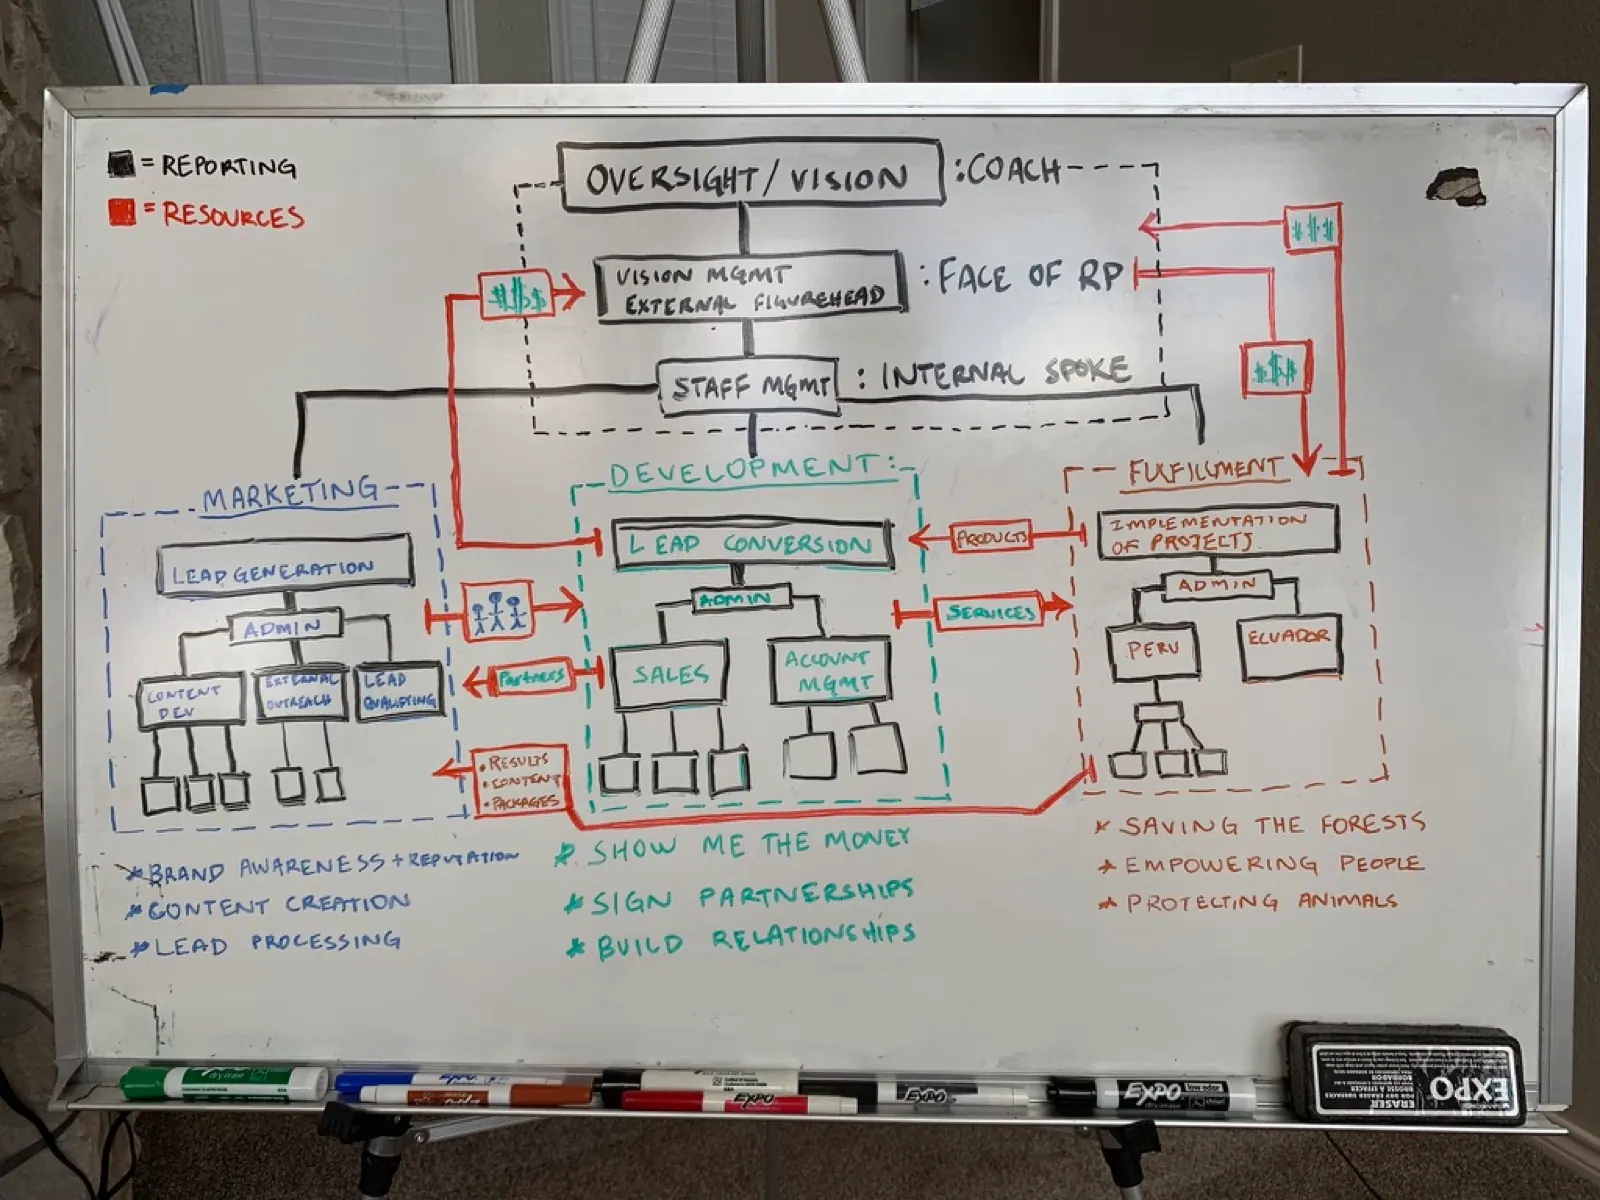 = REPORTING
= RESOURCES
OVERSIGHT/VISION :COACH
VISION MGMT
EXTERNAL FIGUREHEAD
: FACE OF RP
STAFF MGMT : INTERNAL SPOKE
$$$
$$$
$$$
MARKETING
LEAD GENERATION
ADMIN
CONTENT
DEV
EXTERNAL
OUTREACH
LEAD
QUALIFYING
* BRAND AWARENESS + REPUTATION
* CONTENT CREATION
* LEAD PROCESSING
Partners
• RESULTS
• CONTENT
• PACKAGES
DEVELOPMENT:
LEAD CONVERSION
ADMIN
SALES
ACCOUNT
MGMT
* SHOW ME THE MONEY
* SIGN PARTNERSHIPS
* BUILD RELATIONSHIPS
PRODUCTS
SERVICES
FULFILLMENT
IMPLEMENTATION
OF PROJECTS
ADMIN
PERU
ECUADOR
* SAVING THE FORESTS
* EMPOWERING PEOPLE
* PROTECTING ANIMALS
EXPO
EXPO
EXPO
EXPO low odor
dry erase chisel
EXPO
ERASER